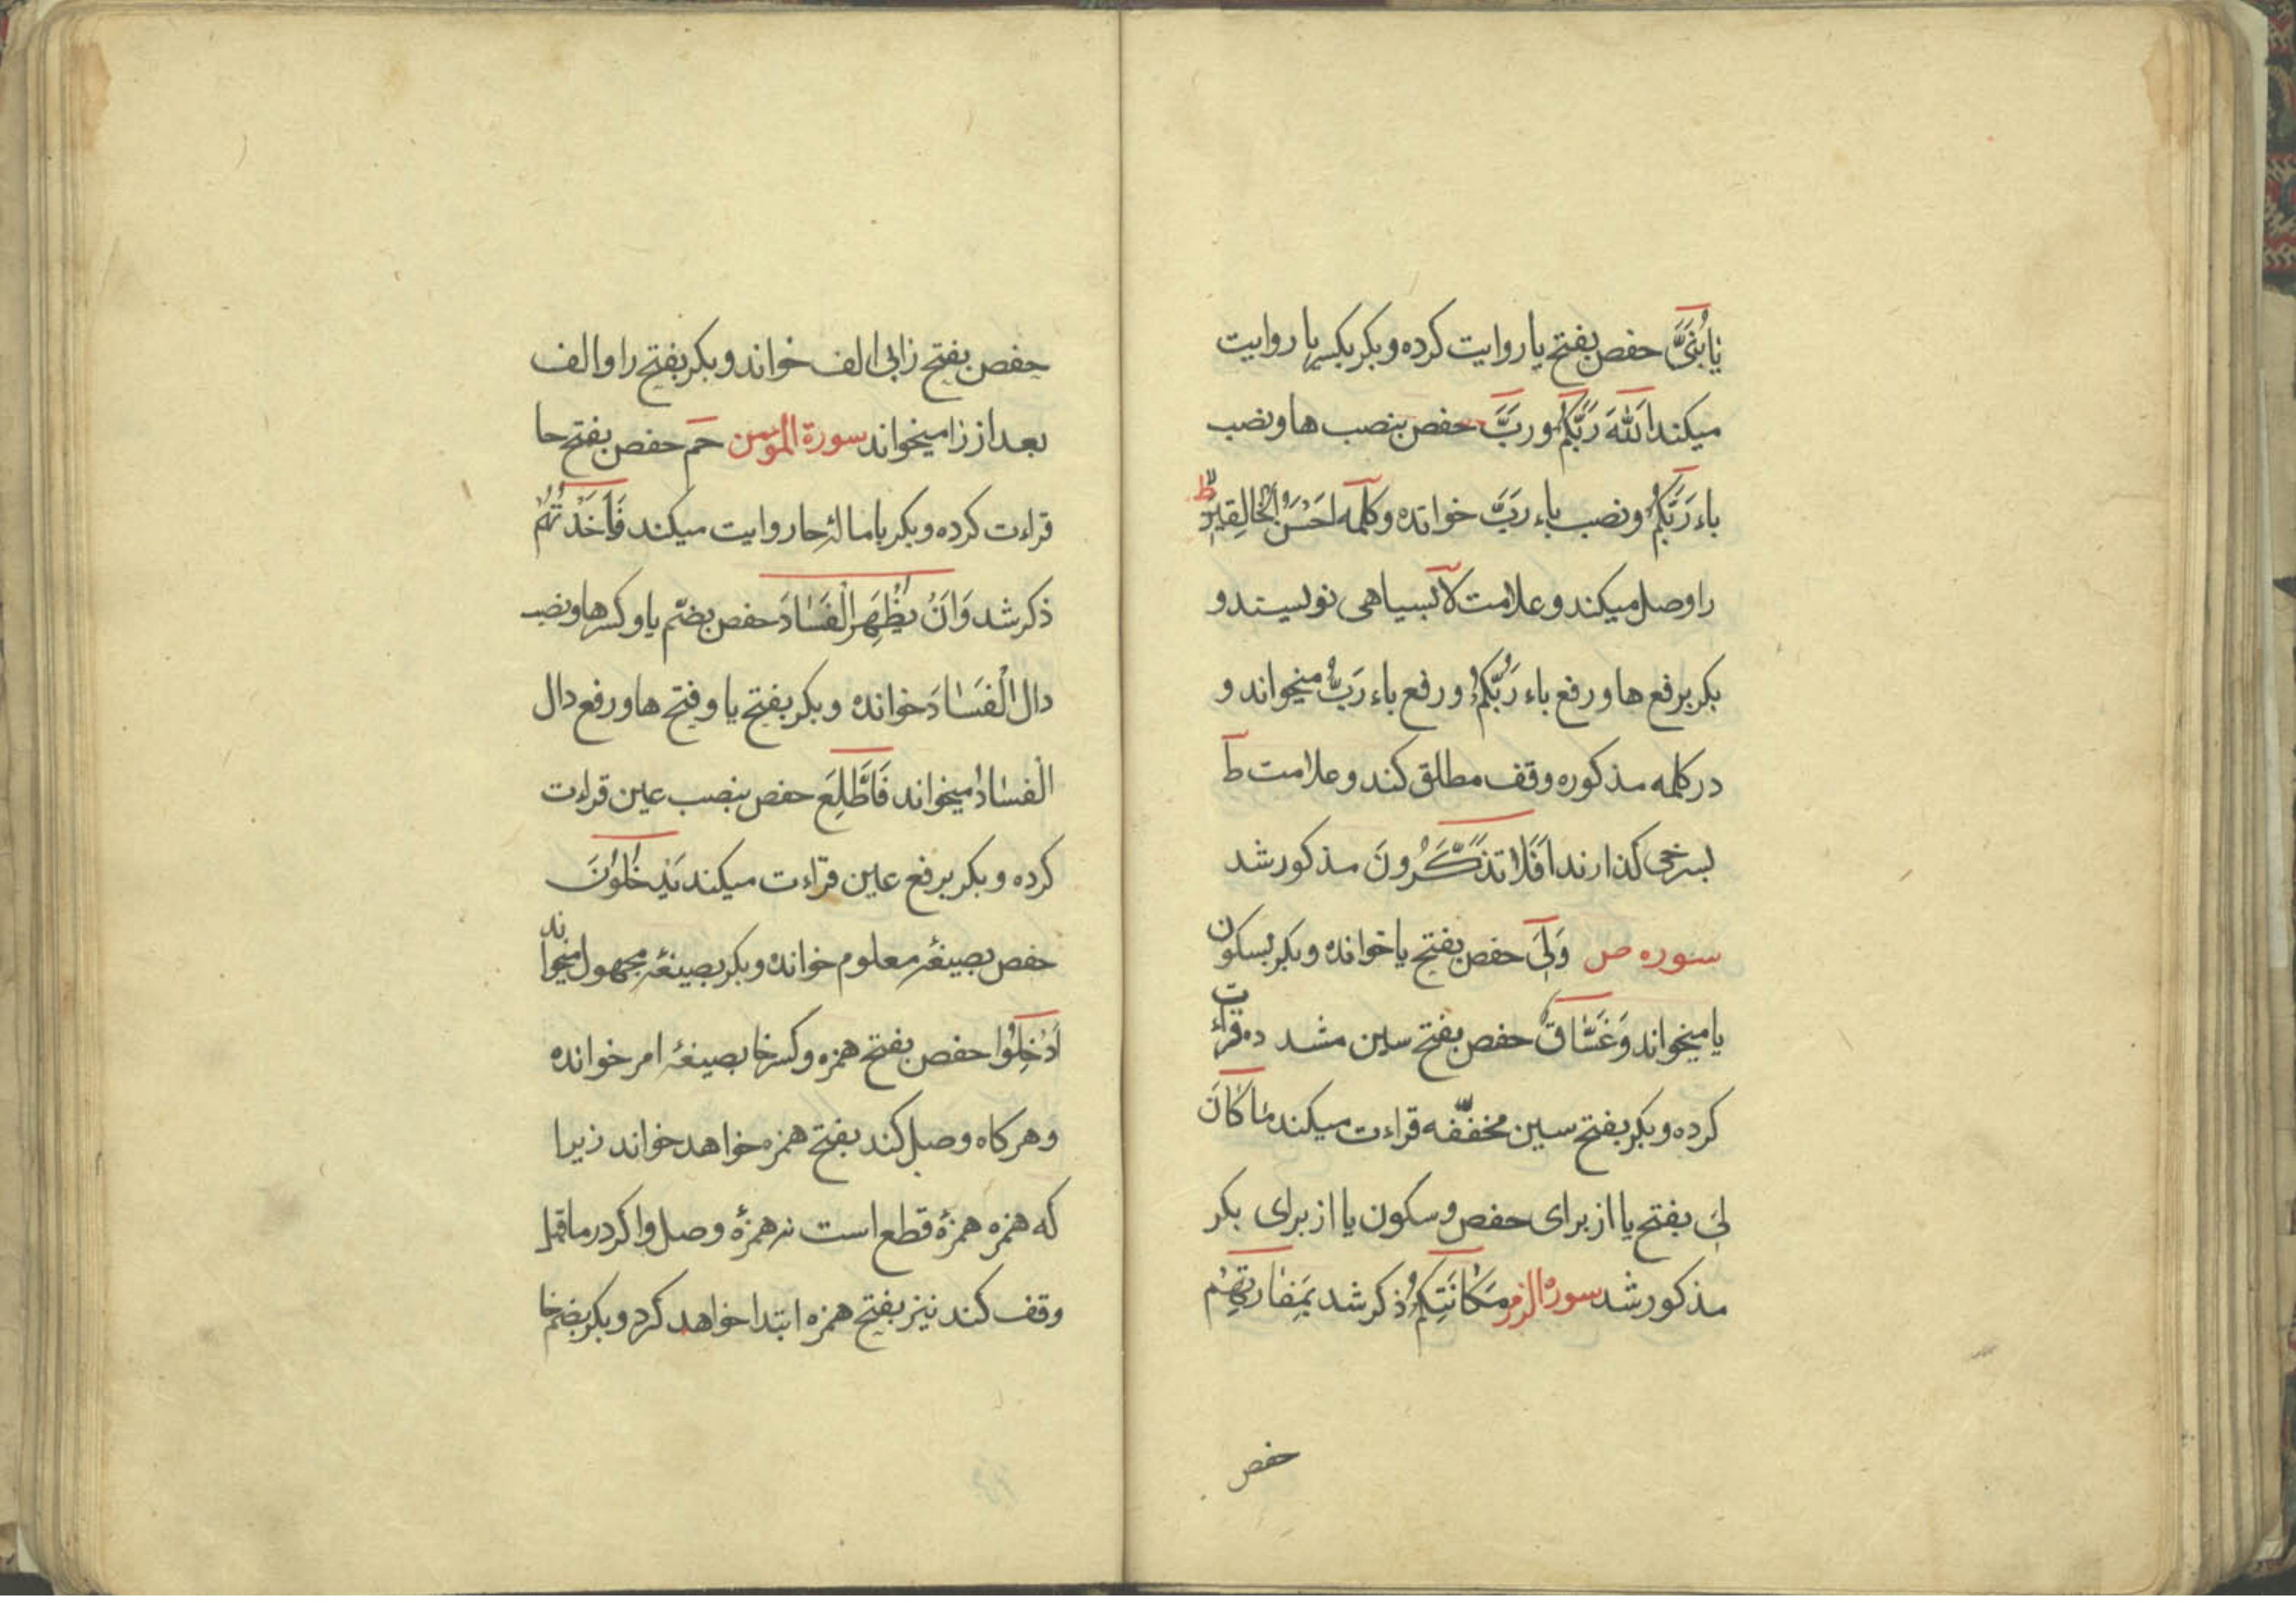 یَا بُنَیَّ حفص بفتح یا روایت کرده و بکر بکسر یا روایت
میکند اَللّٰهَ رَبَّکُمْ وَ رَبَّ حفص بنصب ها و نصب
باء رَبَّکُمْ و نصب باء رَبَّ خوانده و کلمه اَحْسَنَ الْخَالِقِینَ
لا ط
را وصل میکند و علامت لا بسیاهی نویسند و
بکر برفع ها و رفع باء رَبُّکُمْ و رفع باء رَبُّ میخواند و
در کلمه مذکوره وقف مطلق کند و علامت ط
بسرخی کذارند اَفَلَا تَذَکَّرُونَ مذکور شد
سوره ص وَلِیَ حفص بفتح یا خوانده و بکر بسکون
یا میخواند وَغَسَّاقٌ حفص بفتح سین مشدده قراءت
کرده و بکر بفتح سین مخفّفه قراءت میکند مَا کَانَ
لِیَ بفتح یا از برای حفص و سکون یا از برای بکر
مذکور شد سورة الزمر مَکَانَتِکُمْ ذکر شد بِمَفَازَتِهِمْ
حفص
حفص بفتح زا بی الف خواند و بکر بفتح زا و الف
بعد از زا میخواند سورة المؤمن حم حفص بفتح حا
قراءت کرده و بکر باماله حا روایت میکند فَاَخَذْتُهُمْ
ذکر شد وَاَنْ یُظْهِرَ الْفَسَادَ حفص بضمّ یا و کسر ها و نصب
دال الْفَسَادَ خوانده و بکر بفتح یا و فتح ها و رفع دال
الْفسَادُ میخواند فَاَطَّلِعَ حفص بنصب عین قراءت
کرده و بکر برفع عین قراءت میکند یَدْخُلُونَ
حفص بصیغهٔ معلوم خوانده و بکر بصیغهٔ مجهول میخواند
اَدْخِلُوا حفص بفتح همزه و کسر خا بصیغهٔ امر خوانده
و هر کاه وصل کند بفتح همزه خواهد خواند زیرا
که همزه همزهٔ قطع است نه همزهٔ وصل و اکر در ماقبل
وقف کند نیز بفتح همزه ابتدا خواهد کرد و بکر بضم خا